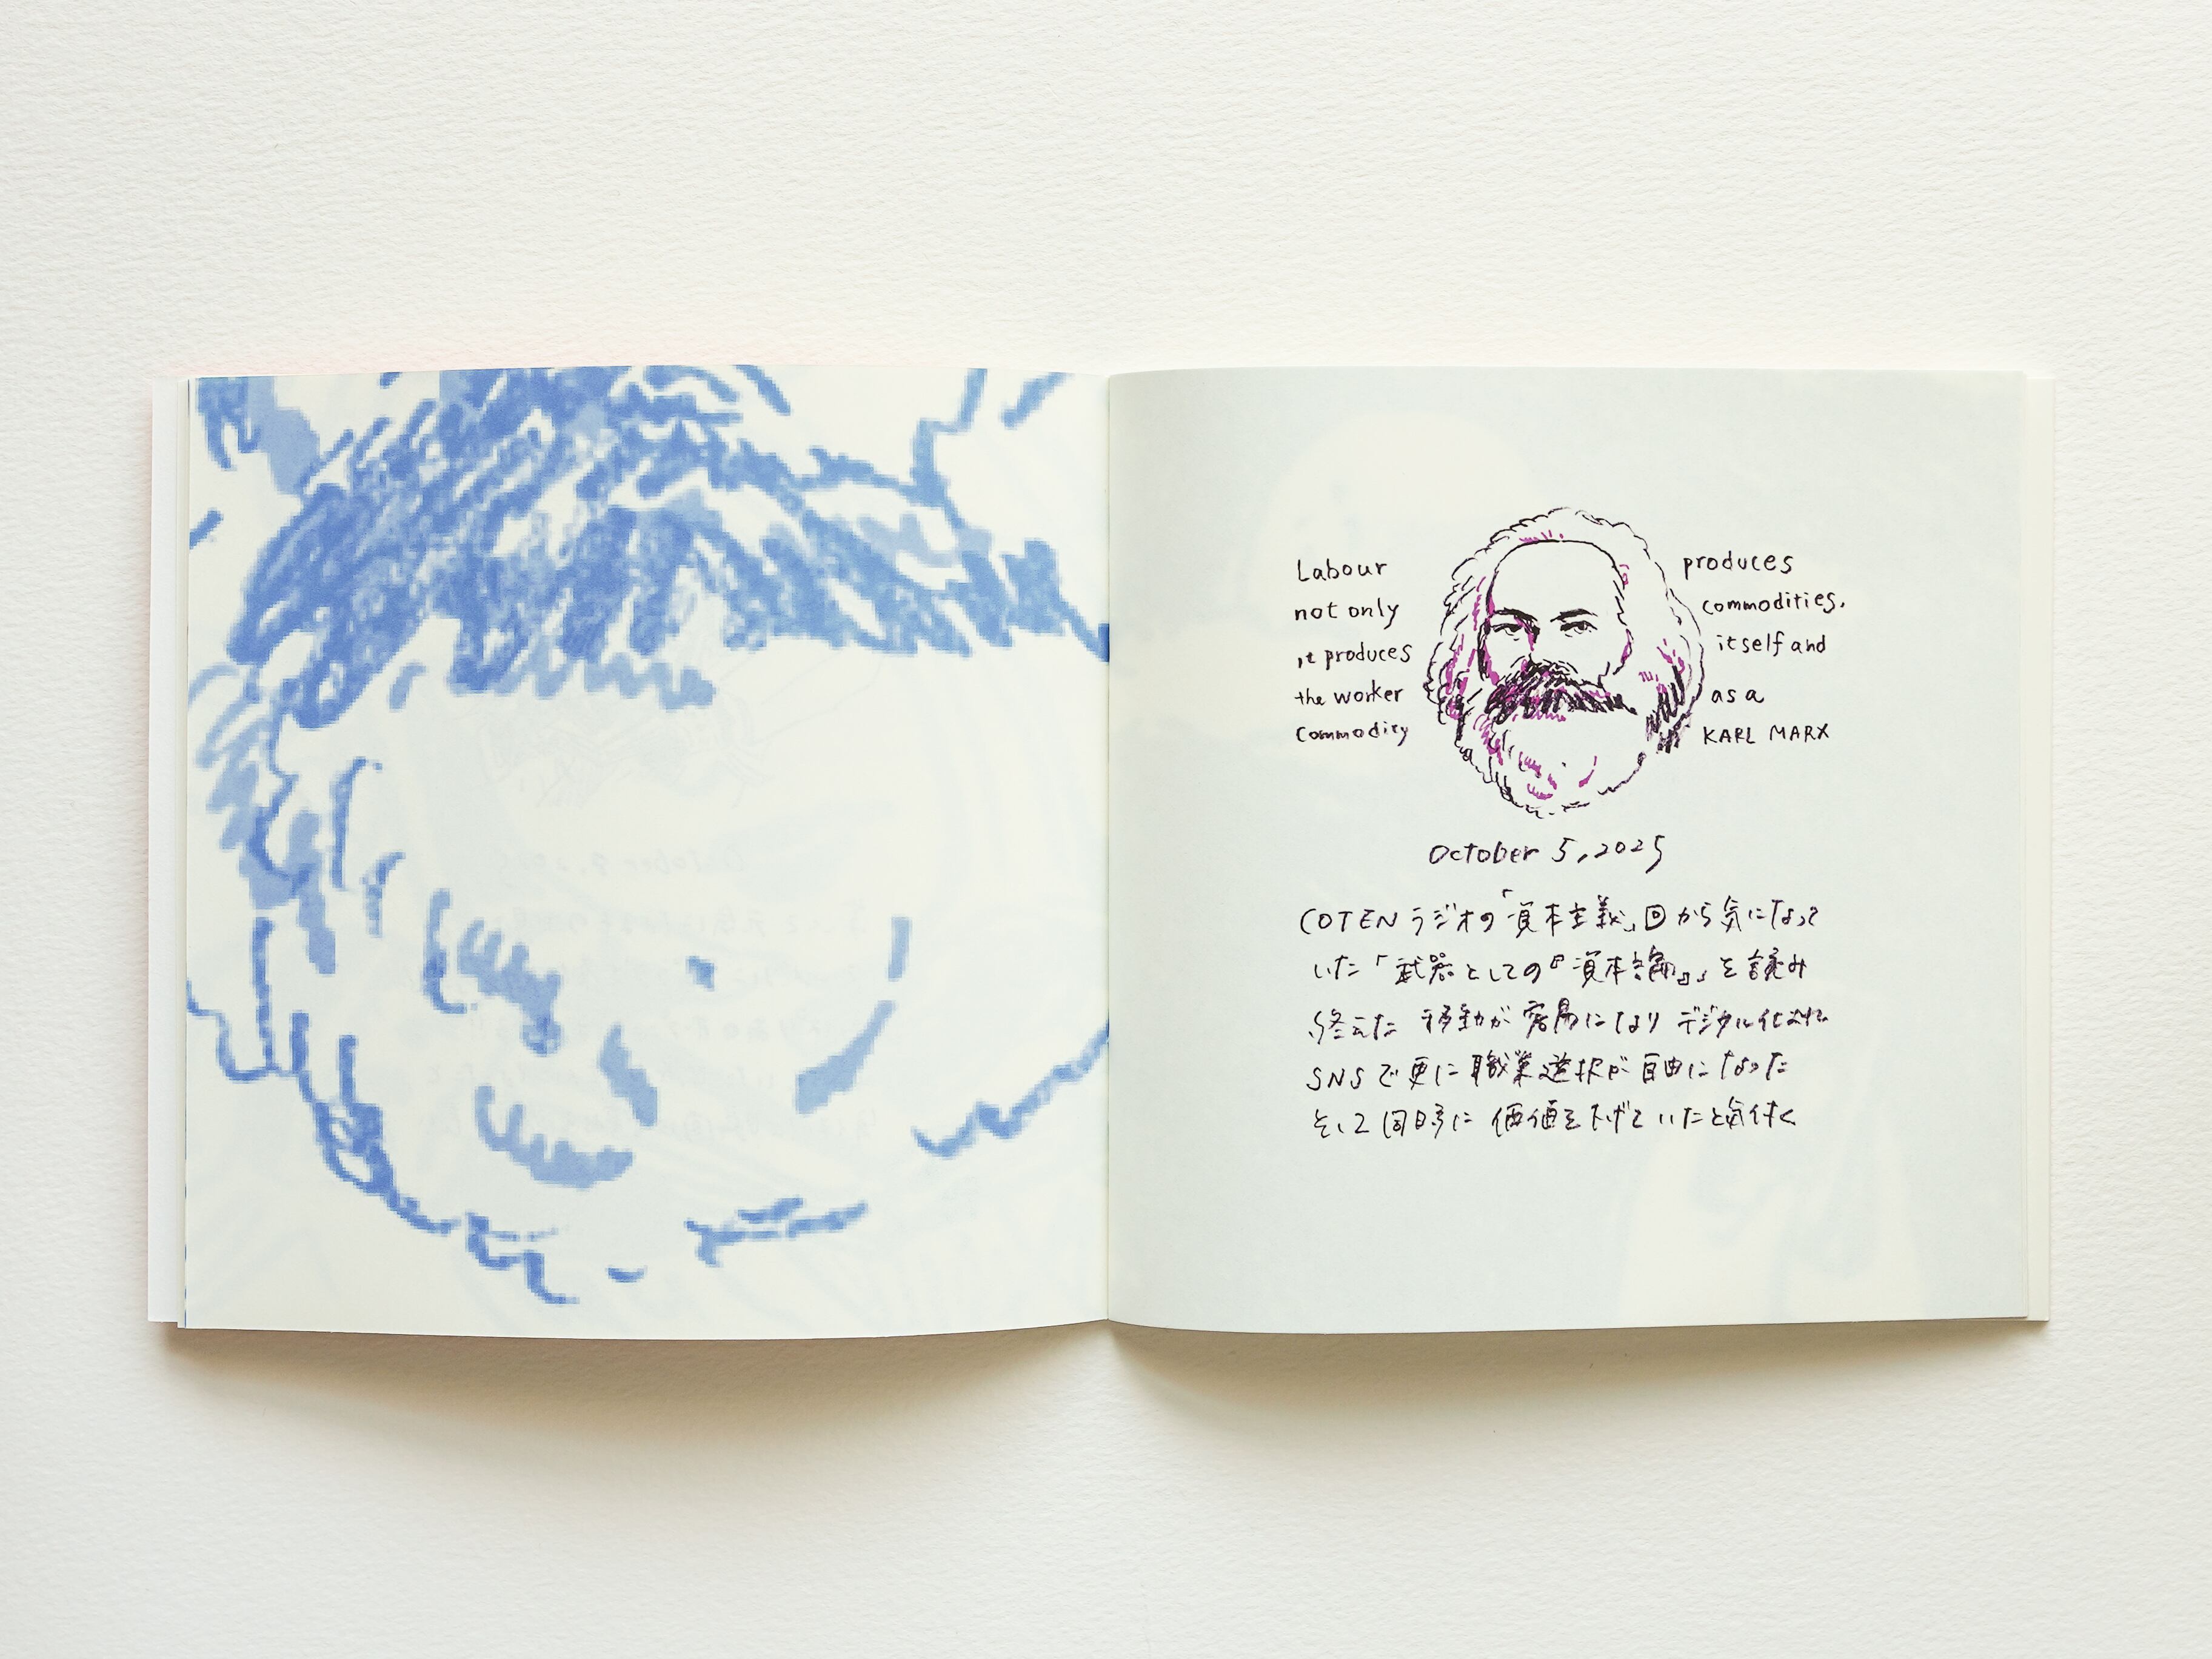 Labour produces
not only commodities,
it produces itself and
the worker as a
commodity KARL MARX
October 5, 2025
COTENラジオの「資本主義」回から気になって
いた「武器としての『資本論』」を読み
終えた 移動が容易になり デジタル化され
SNSで更に職業選択が自由になった
そして同時に価値を下げていたと気付く